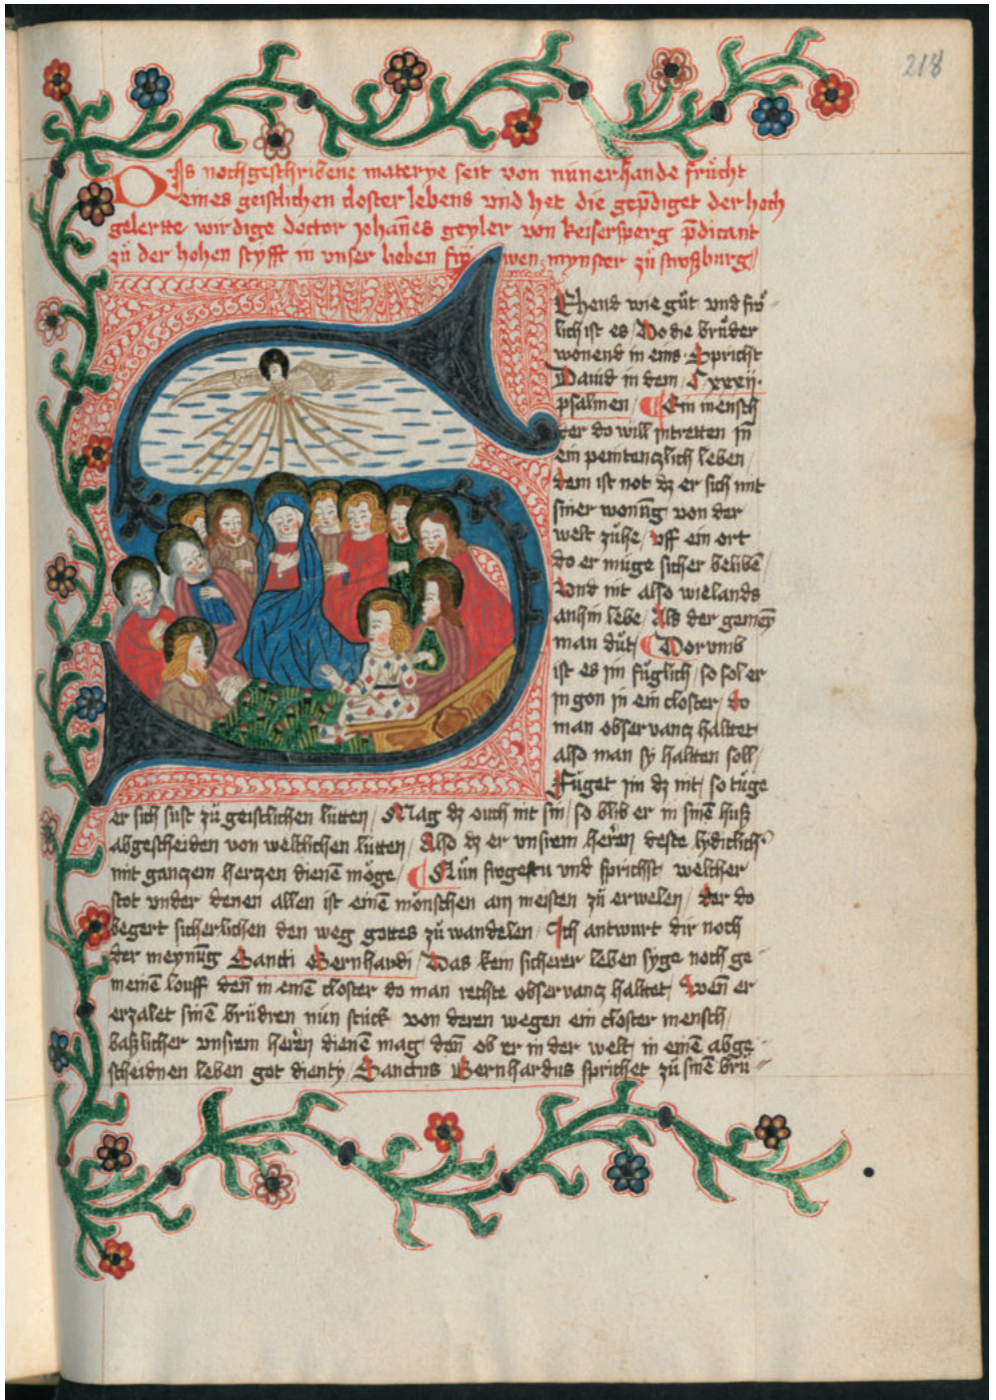 218
Dis nochgeschribene materye seit von nünerhande frücht
eines geistlichen closter lebens vnd het die gep̄diget der hoch
gelertte wirdige doctor johan̄es geyler von keisersperg p̄dicant
zů der hohen styfft in vnser lieben frowen mynster zů stroßburg/
Sehend wie gůt vnd frö
lich ist es / Do die brůder
wonend in eins · Spricht
Dauid in dem / Cxxxij·
psalmen / Ein mensch
der do will intretten in
ein penitenczlich leben /
dem ist not dz er sich mit
siner wonūg von der
welt zühe / vff ein ort
do er müge sicher belibē /
vnd nit also wielands
anhin lebe / Als der gemey
man důt / Dorumb
ist es jm füglich / so sol er
jn gon in ein closter / do
man obseruancz haltet
also man sy haltten soll /
Füget jm dz nit / so tüge
er sich sust zů geistlichen lütten / Mag dz ouch nit sin / so blib er in sinē huß
abgescheiden von weltlichen lütten / Also dz er vnsrem herren deste lydiclich
mit ganczem herczen dienē möge / Nůn frogestu vnd sprichst welcher
stot vnder denen allen ist einē mönschen am meisten zů erwelen / der do
begert sicherlichen den weg gottes zů wandelen / Ich antwurt dir noch
der meynūg Sancti Bernhardi / Das kein sicherer leben syge noch ge
meinē louff den̄ in einē closter do man rechte obseruancz halttet / Wen̄ er
erzalet sinē brüdren nün stück von deren wegen ein closter mensch /
baßlicher vnsrem herrē dienē mag den̄ ob er in der welt in einē abge
scheidnen leben got dienty / Sanctus Bernhardus sprichet zů sinē brü